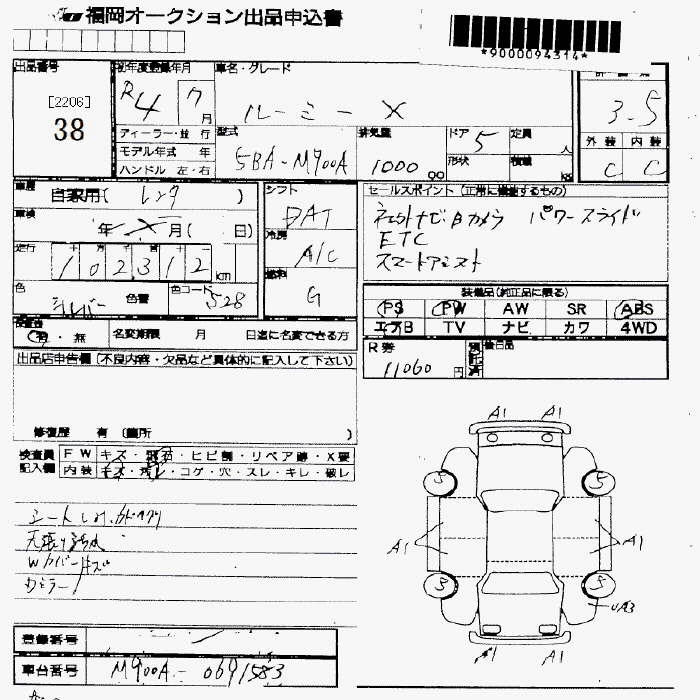 福岡オークション出品申込書
*9000094314*
出品番号
[2206]
38
初年度登録年月
R4 7月
車名・グレード
ルーミー X
3.5
外装 内装
C C
ディーラー・並行
モデル年式 年
ハンドル 左・右
型式
5BA-M900A
排気量
1000 cc
ドア 5
形状
定員 人
積載 kg
車歴
自家用( レンタ )
車検
年 月( 日)
走行
102312 km
色
シルバー
色替
色コード 528
シフト
DAT
冷房
A/C
燃料
G
セールスポイント (正常に機能するもの)
ETC
スマートアシスト
装備品(純正品に限る)
PS PW AW SR ABS
エアB TV ナビ カワ 4WD
有・無 名変期限 月 日迄に名変できる方
R券
11060 円
預託済
後日品
出品店申告欄 (不良内容・欠品など具体的に記入して下さい)
修復歴 有 (箇所 )
検査員記入欄
FW キズ・飛石・ヒビ割・リペア跡・X要
内装 キズ・汚レ・コゲ・穴・スレ・キレ・破レ
A1 A1
5 5
A1 A1
5 5
UA3
A1 A1
登録番号
車台番号
M900A-0691583